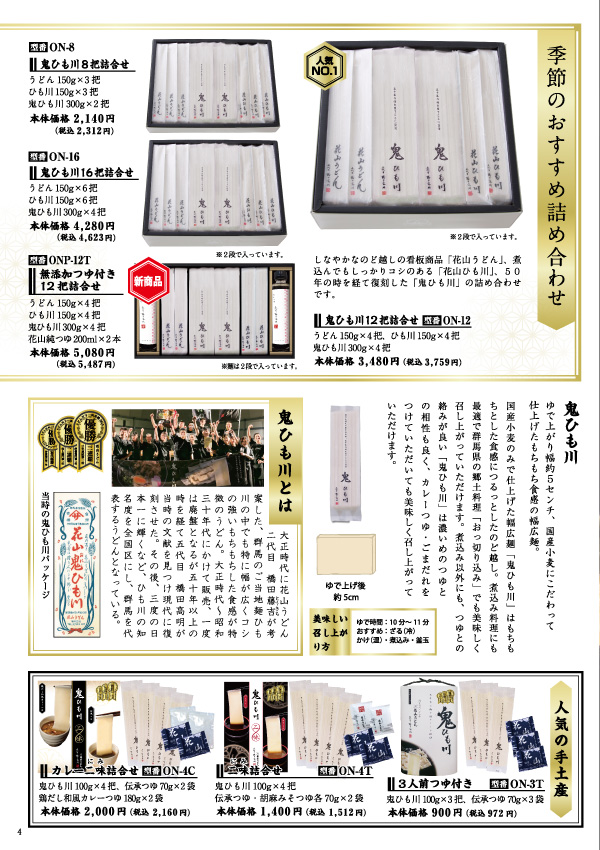 季節のおすすめ詰め合わせ
型番 ON-8
鬼ひも川8把詰合せ
うどん 150g×3把
ひも川 150g×3把
鬼ひも川 300g×2把
本体価格 2,140円
(税込 2,312円)
型番 ON-16
鬼ひも川16把詰合せ
うどん 150g×6把
ひも川 150g×6把
鬼ひも川 300g×4把
本体価格 4,280円
(税込 4,623円)
※2段で入っています。
型番 ONP-12T
無添加つゆ付き
12把詰合せ
うどん 150g×4把
ひも川 150g×4把
鬼ひも川 300g×4把
花山純つゆ 200ml×2本
本体価格 5,080円
(税込 5,487円)
新商品
※麺は2段で入っています。
人気
NO.1
鬼ひも川
花山うどん
※2段で入っています。
しなやかなのど越しの看板商品「花山うどん」、煮
込んでもしっかりコシのある「花山ひも川」、50
年の時を経て復刻した「鬼ひも川」の詰め合わせ
です。
鬼ひも川12把詰合せ 型番 ON-12
うどん 150g×4把、ひも川 150g×4把
鬼ひも川 300g×4把
本体価格 3,480円 (税込 3,759円)
鬼ひも川
ゆで上がり幅約5センチ、国産小麦にこだわって
仕上げたもちもち食感の幅広麺。
国産小麦のみで仕上げた幅広麺「鬼ひも川」はもち
ちとした食感につるっとしたのど越し。煮込み料理にも
最適で群馬県の郷土料理「おっ切り込み」でも美味しく
召し上がっていただけます。煮込み以外にも、つゆとの
絡みが良い「鬼ひも川」は濃いめのつゆと
の相性も良く、カレーつゆ・ごまだれを
つけていただいても美味しく召し上がって
いただけます。
ゆで上げ後
約5cm
美味しい
召し上が
り方
ゆで時間:10分〜11分
おすすめ:ざる(冷)
かけ(温)・煮込み・釜玉
鬼ひも川とは
大正時代に花山うどん
二代目 橋田藤吉が考
案した、群馬のご当地麺ひも
川の中でも特に幅が広くコシ
の強いもちもちした食感が特
徴のうどん。大正時代〜昭和
三十年代にかけて販売、一度
は廃盤となるが五十年以上の
時を経て五代目 橋田高明が
当時の文献を見つけ現代に復
刻させた。その後、三度の日
本一に輝くなど、ひも川の知
名度を全国区にし、群馬を代
表するうどんとなっている。
優勝
優勝
優勝
花山鬼ひも川
当時の鬼ひも川パッケージ
人気の手土産
カレー二味詰合せ 型番 ON-4C
にみ
鬼ひも川 100g×4把、伝承つゆ 70g×2袋
鶏だし和風カレーつゆ 180g×2袋
本体価格 2,000円 (税込 2,160円)
二味詰合せ 型番 ON-4T
にみ
鬼ひも川 100g×4把
伝承つゆ・胡麻みそつゆ各 70g×2袋
本体価格 1,400円 (税込 1,512円)
3人前つゆ付き 型番 ON-3T
鬼ひも川 100g×3把、伝承つゆ 70g×3袋
本体価格 900円 (税込 972円)
4